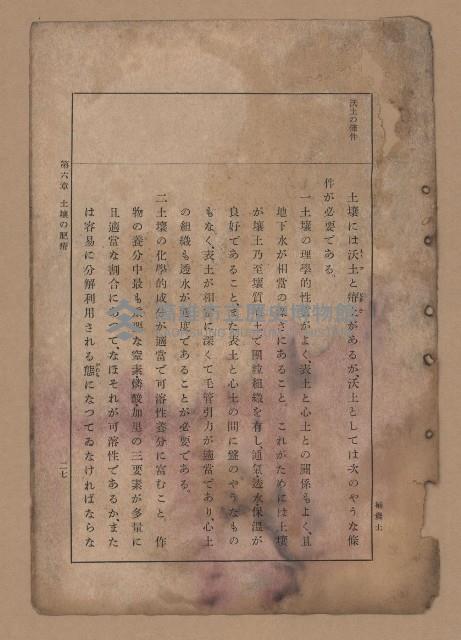 沃土の條件
土壤には沃土と瘠土があるが、沃土としては次のやうな條
件が必要である。
一 土壤の理學的性がよく、表土と心土との關係もよく、且
地下水が相當の深さにあること。これがためには土壤
が壤土乃至壤質土で團粒組織を有し、通氣透水保濕が
良好であること、また表土と心土の間に盤のやうなもの
もなく、表土が相當に深くて毛管引力が適當であり、心土
の組織も透水が適度であることが必要である。
二 土壤の化學的成分が適當で可溶性養分に富むこと。作
物の養分中最も必要な窒素、燐酸、加里の三要素が多量に
且適當な割合にあつて、なほそれが可溶性であるか、また
は容易に分解利用される態になつてゐなければならな
第六章 土壤の肥瘠
二七
高雄市立歷史博物館
KAOHSIUNG MUSEUM OF HISTORY